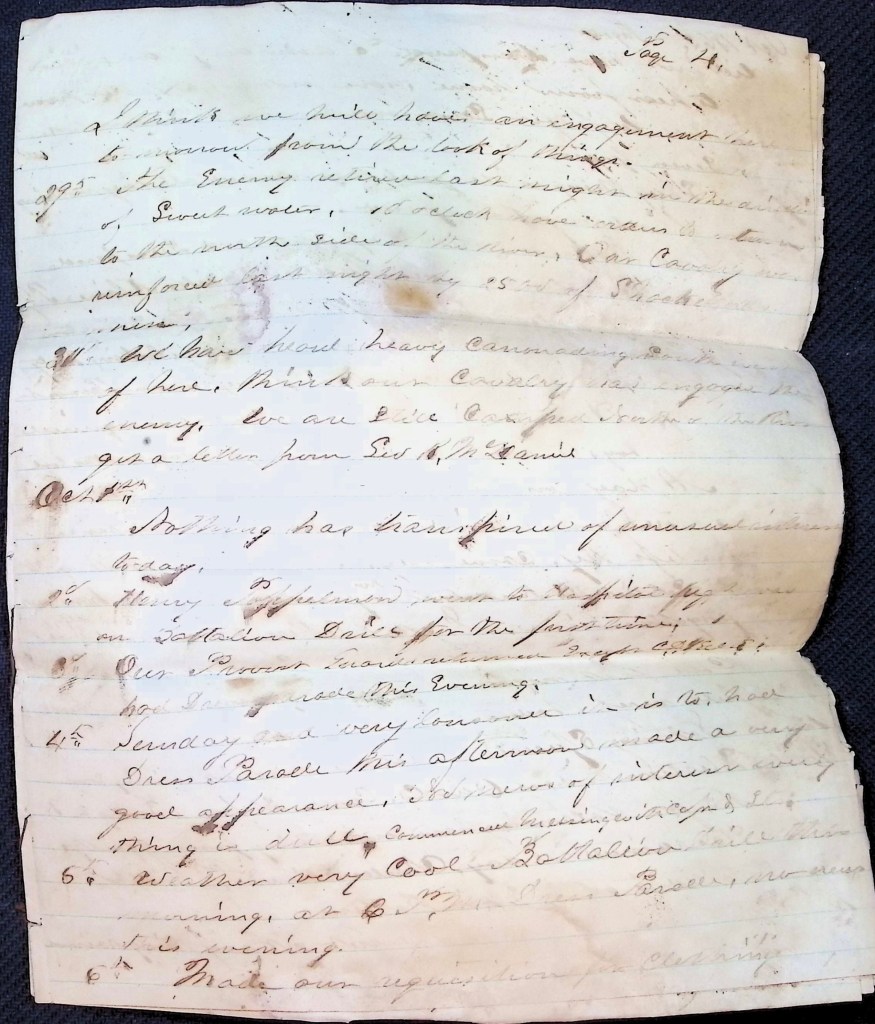 Page 4.
I think we will have an engagement
to morrow from the look of things.
29th The Enemy retired last night in the
of Sweet water, o'clock have orders to
to the north side of the river, Our Cavalry
reinforced last night by 2500 of
men,
30th We have heard heavy Canonading South
of here. think our Cavalry has engaged the
enemy. We are still Camped North of the River
got a letter from Geo K. McDaniel
Oct 1st
Nothing has transpired of unusual interest
today.
2d Henry went to Hospital
on Battalion Drill for the first time.
3d Our Provost Guard returned
had Dress parade this Evening.
4th Sunday and very lonsome it is to, had
Dress Parade this afternoon made a very
good appearance. No news of interest every
thing is dull, Commenced Messing with Capt &
5th Weather very Cool Battalion Drill this
morning, at 6 P.M. Dress Parade, no news
this evening.
6th Made our requisition for Clothing